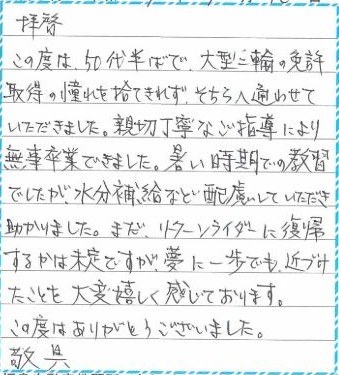 拝啓
この度は、50代半ばで、大型二輪の免許
取得の憧れを捨てきれず、そちらへ通わせて
いただきました。親切丁寧なご指導により
無事卒業できました。暑い時期での教習
でしたが、水分補給など配慮していただき
助かりました。まだ、リターンライダーに復帰
するかは未定ですが、夢に一歩でも、近づけ
たことを大変嬉しく感じております。
この度はありがとうございました。
敬具